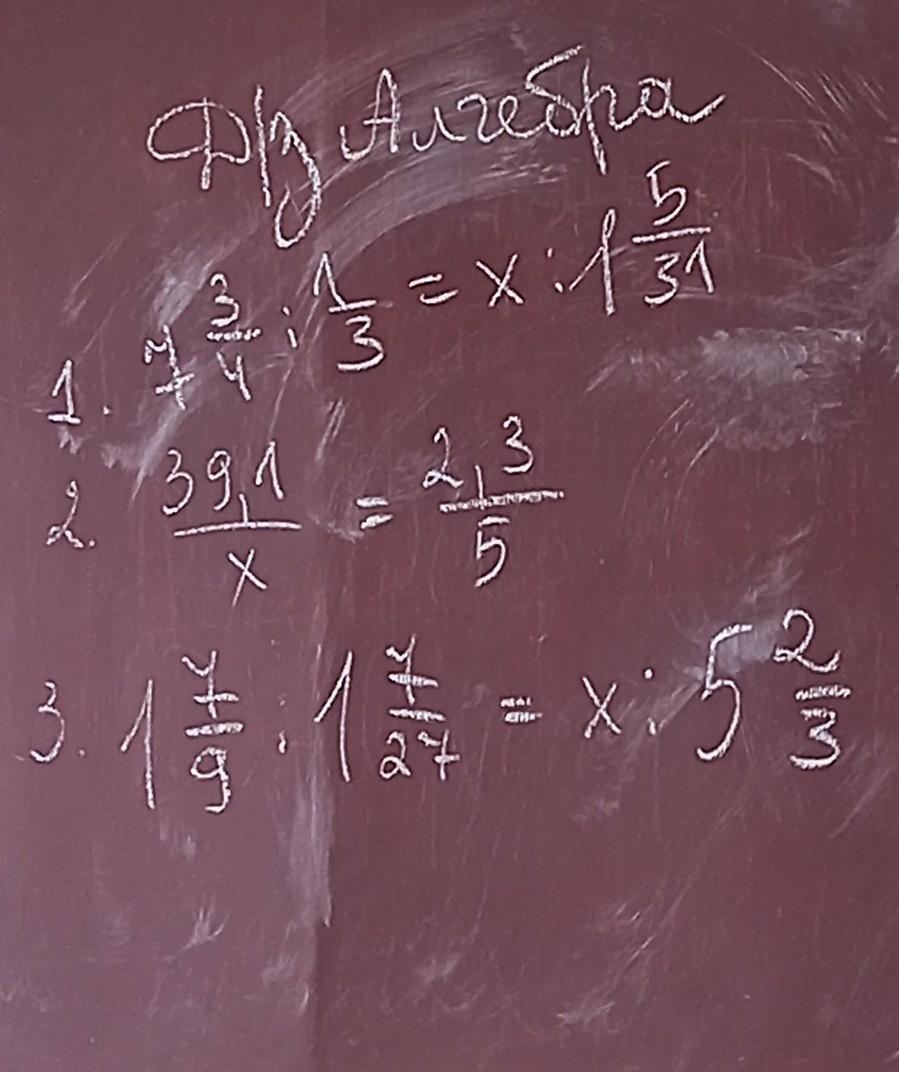 Д/з Алгебра
1. 7 3/4 : 1/3 = x : 1 5/31
2. 39,1/x = 2,3/5
3. 1 7/9 : 1 7/27 = x : 5 2/3